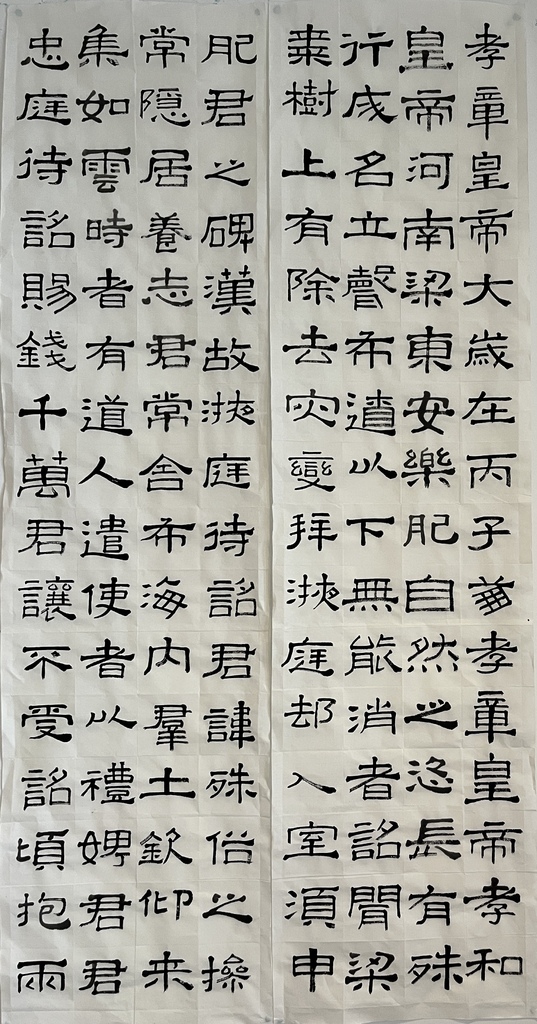 孝章皇帝大歲在丙子孝章皇帝孝和
皇帝河南梁東安樂肥自然之恣長有殊
行成名立聲布遺以下無能消者詔聞梁
棗樹上有除去灾變拜掖庭却入室須申
肥君之碑漢故掖庭待詔君諱殊俗之操
常隱居養志君常舍布海内羣土欽仰来
集如雲時者有道人遣使者以禮娉君君
忠庭待詔賜錢千萬君讓不受詔頃抱兩